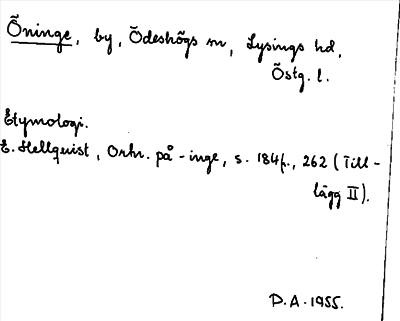 Öninge, by, Ödeshögs sn, Lysings hd,
Östg. l.
Etymologi.
E. Hellquist, Ortn. på -inge, s. 184f., 262 (Till-
lägg II).
D.A. 1955.